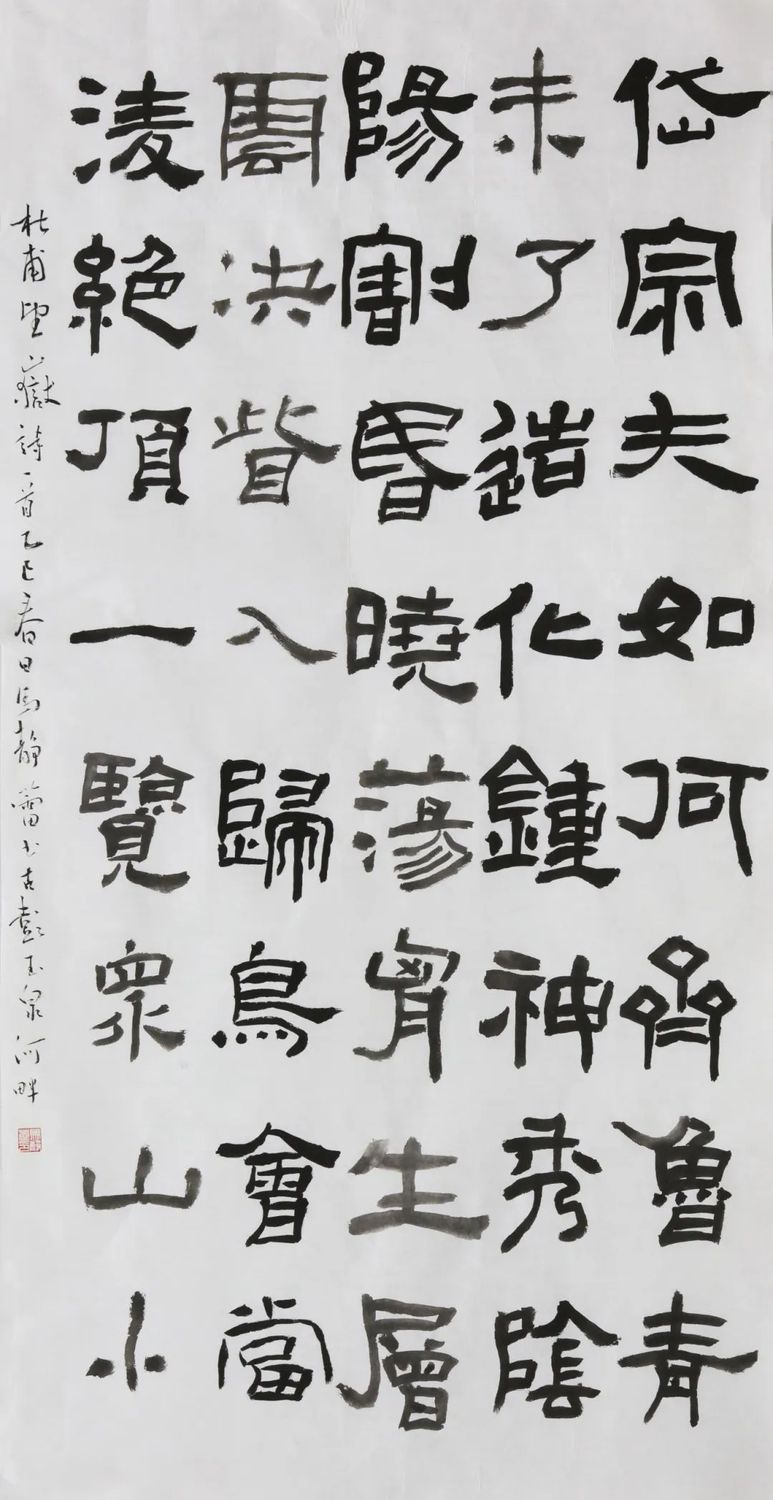 岱宗夫如何齊魯青
未了造化鍾神秀陰
陽割昏曉蕩胷生層
雲決眥入歸鳥會當
淩絕頂一覽眾山小
杜甫望嶽詩一首乙巳春日馬静蕾书古彭玉泉河畔